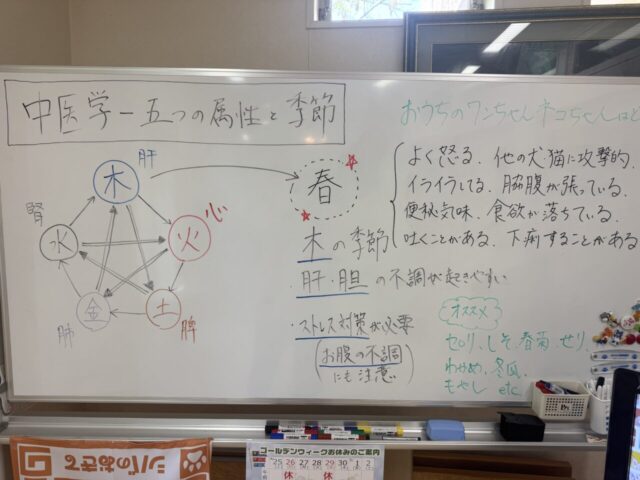 中医学ー五つの属性と季節
おうちのワンちゃんネコちゃんはど
肝
木
心
火
脾
土
肺
金
腎
水
春
木の季節
・肝・胆の不調が起きやすい
・ストレス対策が必要
(お腹の不調
にも注意)
よく怒る、他の犬猫に攻撃的、
イライラしてる、脇腹が張っている、
便秘気味、食欲が落ちている、
吐くことがある、下痢することがある
オススメ
セロリ、しそ、春菊、せり、
わかめ、冬瓜、
もやし etc
シバのおきて
ゴールデンウィークお休みのご案内
25 26 27 28 29 30 1 2
休 休